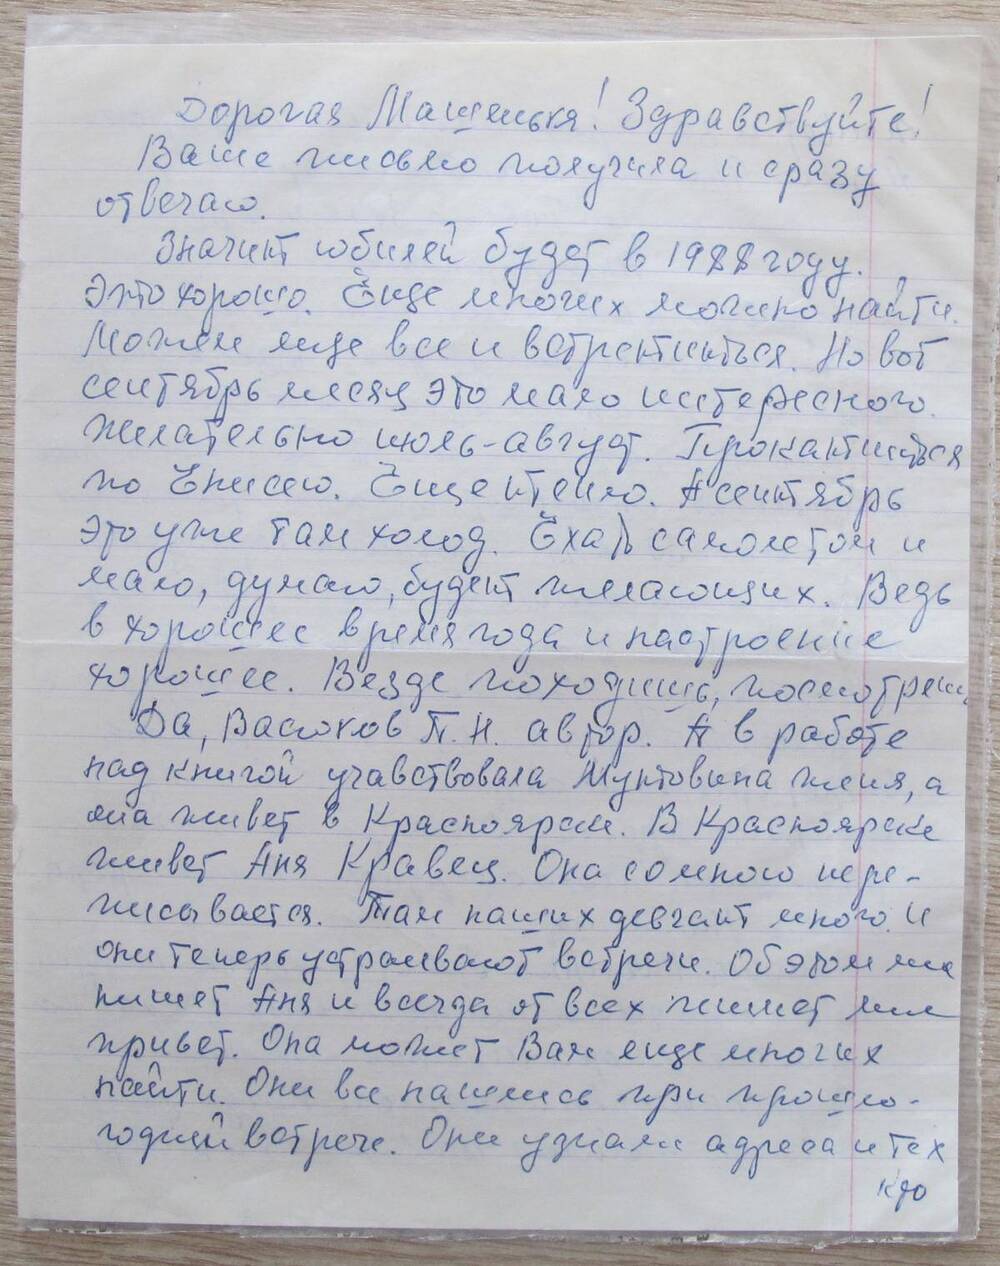 Дорогая Машенька! Здравствуйте!
Ваше письмо получила и сразу
отвечаю.
Значит юбилей будет в 1988 году.
Это хорошо. Еще многих можно найти.
Может еще все и встретиться. Но вот
сентябрь месяц это мало интересного.
Желательно июль-август. Прокатиться
по Енисею. Еще тепло. А сентябрь
это уже там холод. Ехать самолетом и
мало, думаю, будет желающих. Ведь
в хорошее время года и настроение
хорошее. Везде походишь, посмотришь
Да, Васюков П.Н. автор. А в работе
над книгой учавствовала Мунтовина Женя, а
она живет в Красноярске. В Красноярске
живет Аня Кравец. Она со мною пере-
писывается. Там наших девчат много и
они теперь устраивают встречи. Об этом мне
пишет Аня и всегда от всех пишет мне
привет. Она может Вам еще многих
найти. Они все нашлись при прошло-
годней встрече. Они узнали адреса и тех
кто